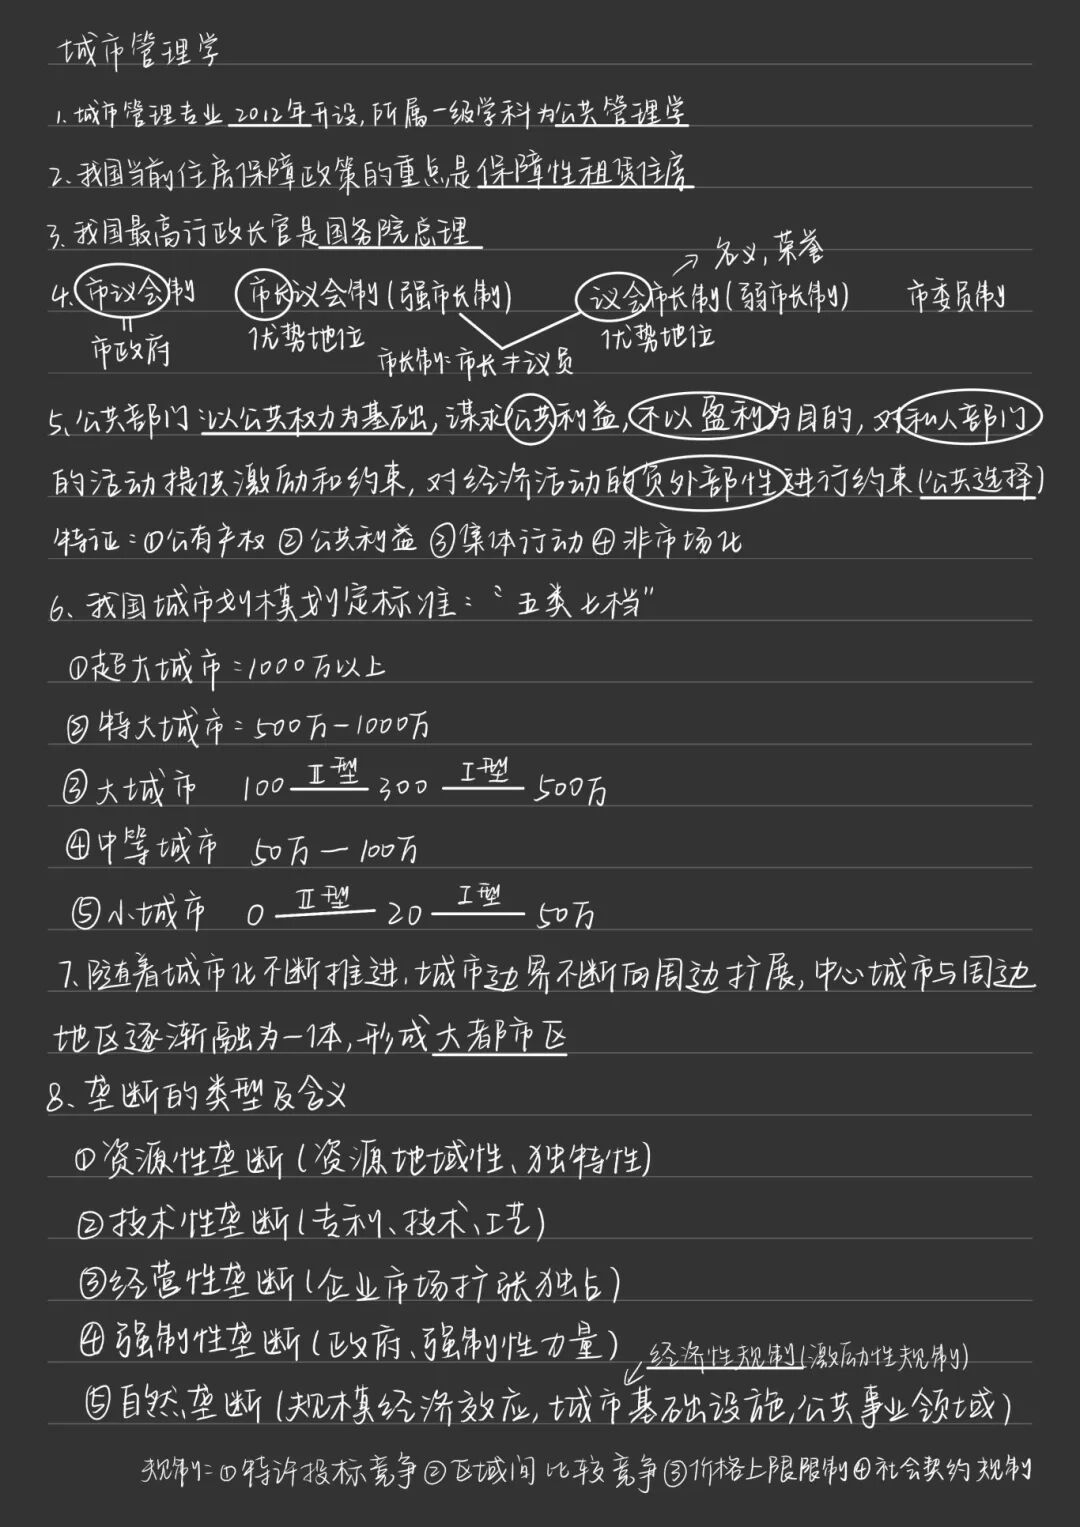 城市管理学
1.城市管理专业 2012年开设,所属一级学科为公共管理学
2.我国当前住房保障政策的重点是保障性租赁住房
3.我国最高行政长官是国务院总理
→名义,荣誉
4.市议会制 市长议会制(强市长制) 议会市长制(弱市长制) 市委员制
市政府 优势地位 市长制:市长≠议员 优势地位
5、公共部门:以公共权力为基础,谋求公共利益,不以盈利为目的,对私人部门
的活动提供激励和约束,对经济活动的负外部性进行约束(公共选择)
特征:①公有产权 ②公共利益 ③集体行动 ④非市场化
6、我国城市划模划定标准:"五类七档"
①超大城市:1000万以上
②特大城市:500万—1000万
③大城市 100 Ⅱ型 300 Ⅰ型 500万
④中等城市 50万—100万
⑤小城市 0 Ⅱ型 20 Ⅰ型 50万
7.随着城市化不断推进,城市边界不断向周边扩展,中心城市与周边
地区逐渐融为一体,形成大都市区
8、垄断的类型及含义
①资源性垄断(资源地域性、独特性)
②技术性垄断(专利、技术、工艺)
③经营性垄断(企业市场扩张独占)
④强制性垄断(政府、强制性力量)
经济性规制(激励性规制)
⑤自然垄断(规模经济效应,城市基础设施,公共事业领域)
规制:①特许投标竞争②区域间比较竞争③价格上限限制④社会契约规制